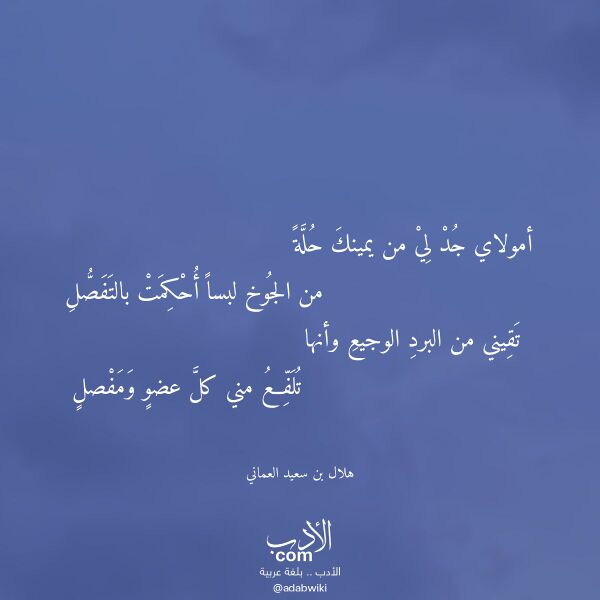 أمولاي جُدْ لِيْ من يمينكَ حُلَّةً
من الجُوخِ لبساً أُحْكِمَتْ بالتَفَصُّلِ
تَقِيني من البردِ الوجيعِ وأنها
تُلَفِّعُ مني كلَّ عضوٍ وَمَفْصلٍ
هلال بن سعيد العماني
الأدب
com
الأدب .. بلغة عربية
@adabwiki